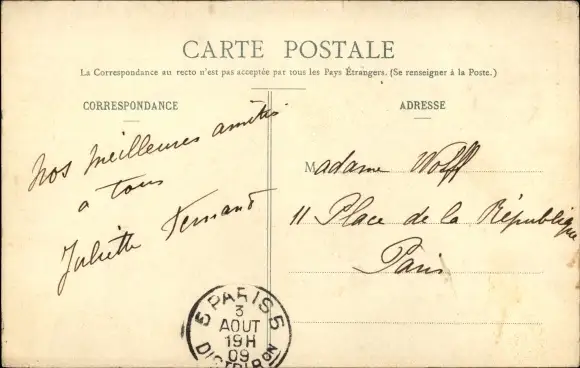 CARTE POSTALE
La Correspondance au recto n'est pas acceptée par tous les Pays Étrangers. (Se renseigner à la Poste.)
CORRESPONDANCE
nos meilleures amitiés
a tous
Juliette Fernand
ADRESSE
Madame Wolff
11 Place de la République
Paris
5 PARIS 5
3
AOUT
19H
09
DISTRIBON